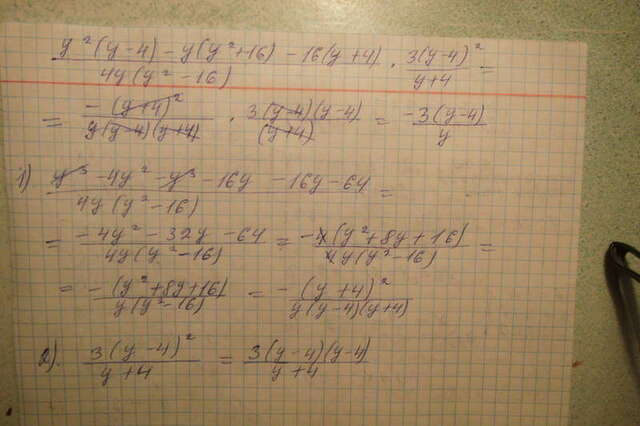 y²(y-4) - y(y²+16) - 16(y+4) / 4y(y²-16) · 3(y-4)² / y+4 =
= -(y+4)² / y(y-4)(y+4) · 3(y-4)(y-4) / (y+4) = -3(y-4) / y
1) y³ - 4y² - y³ - 16y - 16y - 64 / 4y(y²-16) =
= -4y² - 32y - 64 / 4y(y²-16) = -4(y²+8y+16) / 4y(y²-16) =
= -(y²+8y+16) / y(y²-16) = -(y+4)² / y(y-4)(y+4)
2). 3(y-4)² / y+4 = 3(y-4)(y-4) / y+4